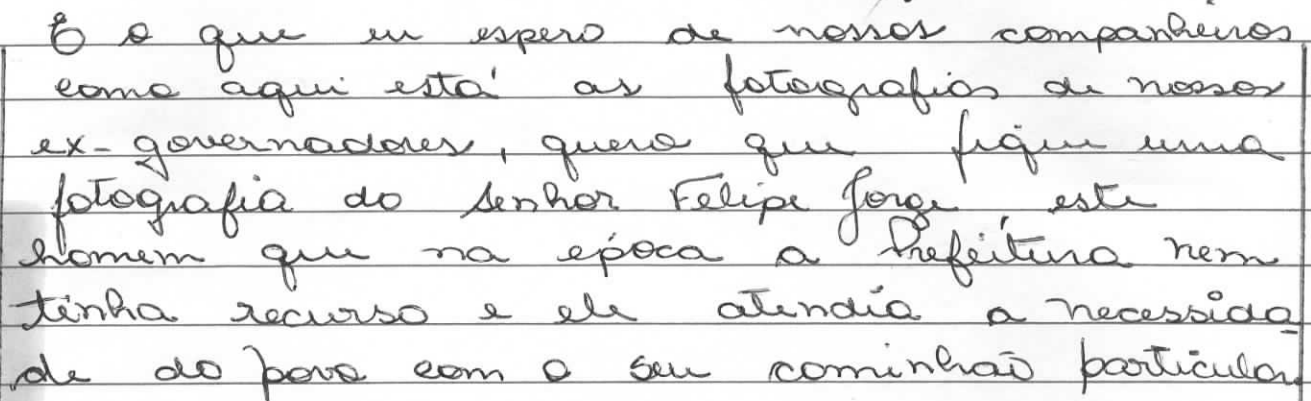 E o que eu espero de nossos companheiros
como aqui está as fotografias de nossos
ex-governadores, quero que fique uma
fotografia do senhor Felipe Jorge este
homem que na época a Prefeitura nem
tinha recurso e ele atendia a necessida
de do povo com o seu cominhão particular